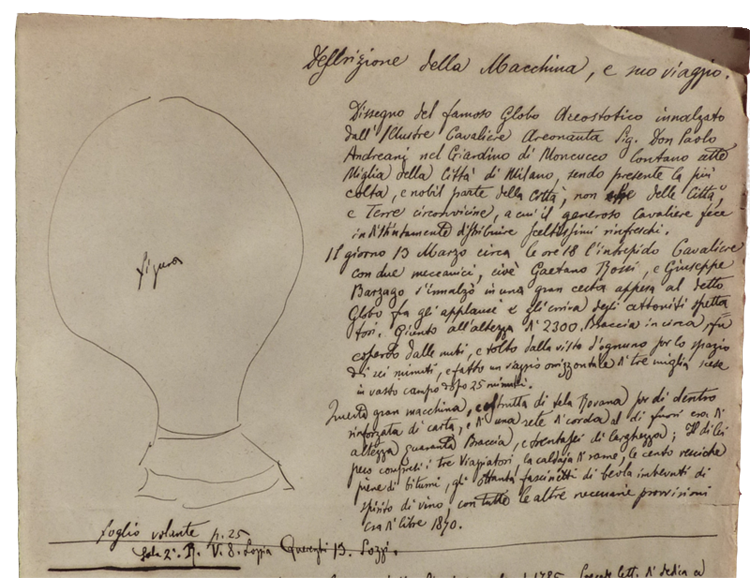 Descrizione della Macchina, e suo viaggio.
Dissegno del famoso Globo Areostatico innalzato
dall'Illustre Cavaliere Areonauta Sig. Don Paolo
Andreani nel Giardino di Moncucco lontano otto
Miglia della Città di Milano, sendo presente la più
colta, e nobil parte della Città, non delle Città,
e Terre circonvicine, a cui il generoso Cavaliere fece
indistintamente distribuire sceltissimi rinfreschi.
Il giorno 13 Marzo circa le ore 18 l'intrepido Cavaliere
con due meccanici, cioè Gaetano Rossi, e Giuseppe
Barzago s'innalzò in una gran cesta appesa al detto
Globo fra gli applausi e gli evviva degli attoniti spetta=
tori. Giunto all'altezza di 2300. Braccia in circa, fu
coperto dalle nubi, e tolto dalla vista d'ognuno per lo spazio
di sei minuti, e fatto un viaggio orizzontale di tre miglia scese
in vasto campo dopo 25 minuti.
Questa gran macchina, costrutta di tela Rovana per di dentro
rinforzata di carta, e di una rete di corda al di fuori era di
altezza quaranta Braccia, e trentasei di larghezza; Il di lei
peso compresi i tre Viagiatori, la caldaja di rame, le cento vesciche
piene di bitumi, gli ottanta fascinetti di beola imbevuti di
spirito di vino, con tutte le altre necessarie provvisioni
era di libre 1890.
figura
foglio volante p. 25
Sala 2ª. R. V. 8.
1785.